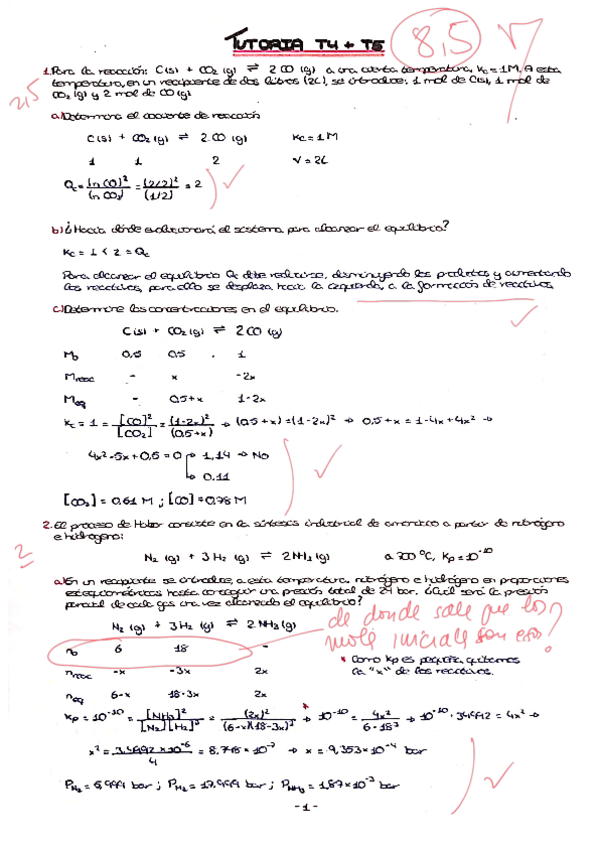 TUTORIA T4 + T5
8,5
1. Para la reacción: C(s) + CO₂ (g) ⇌ 2 CO (g) a una cierta temperatura, Kc = 1M, A esta
2,5
temperatura, en un recipiente de dos litros (2L), se introduce; 1 mol de C(s), 1 mol de
CO₂ (g) y 2 mol de CO(g)
a) Determina el cociente de reacción
C(s) + CO₂ (g) ⇌ 2 CO (g) Kc = 1 M
1 1 2 V = 2L
Qc = (nCO)²/(nCO₂) = (2/2)²/(1/2) = 2
b) ¿Hacia dónde evolucionará el sistema para alcanzar el equilibrio?
Kc = 1 < 2 = Qc
Para alcanzar el equilibrio Qc debe reducirse, disminuyendo los productos y aumentando
los reactivos, para ello se desplaza hacia la izquierda, a la formación de reactivos
c) Determine las concentraciones en el equilibrio.
C(s) + CO₂(g) ⇌ 2 CO (g)
M₀ 0,5 0,5 . 1
Mreac - x -2x
Meq - 0,5+x 1-2x
Kc = 1 = [CO]²/[CO₂] = (1-2x)²/(0,5+x) → (0,5+x) = (1-2x)² → 0,5+x = 1-4x+4x² →
4x²-5x+0,5 = 0 → 1,14 → No
→ 0,11
[CO₂] = 0,61 M ; [CO] = 0,78 M
2. El proceso de Haber consiste en la síntesis industrial de amoniaco a partir de nitrógeno
2
e hidrógeno:
N₂ (g) + 3 H₂ (g) ⇌ 2NH₃ (g) a 300 °C, Kp = 10⁻¹⁰
a) En un recipiente se introduce, a esta temperatura, nitrógeno e hidrógeno en proporciones
estequiométricas hasta conseguir una presión total de 24 bar. ¿Cuál será la presión
parcial de cada gas una vez alcanzado el equilibrio?
N₂ (g) + 3H₂ (g) ⇌ 2NH₃ (g)
de donde sale que los
moles iniciales son esos?
n₀ 6 18 -
* Como Kp es pequeña, quitamos
la "x" de los reactivos.
nreac -x -3x 2x
neq 6-x 18-3x 2x
Kp = 10⁻¹⁰ = [NH₃]²/[N₂][H₂]³ = (2x)²/(6-x)(18-3x)³ →* 10⁻¹⁰ = 4x²/6·18³ → 10⁻¹⁰ · 34992 = 4x² →
x² = 3,4992×10⁻⁶/4 = 8,748·10⁻⁷ → x = 9,353×10⁻⁴ bar
PN₂ = 5,999 bar ; PH₂ = 17,999 bar ; PNH₃ = 1,87×10⁻³ bar
-1-